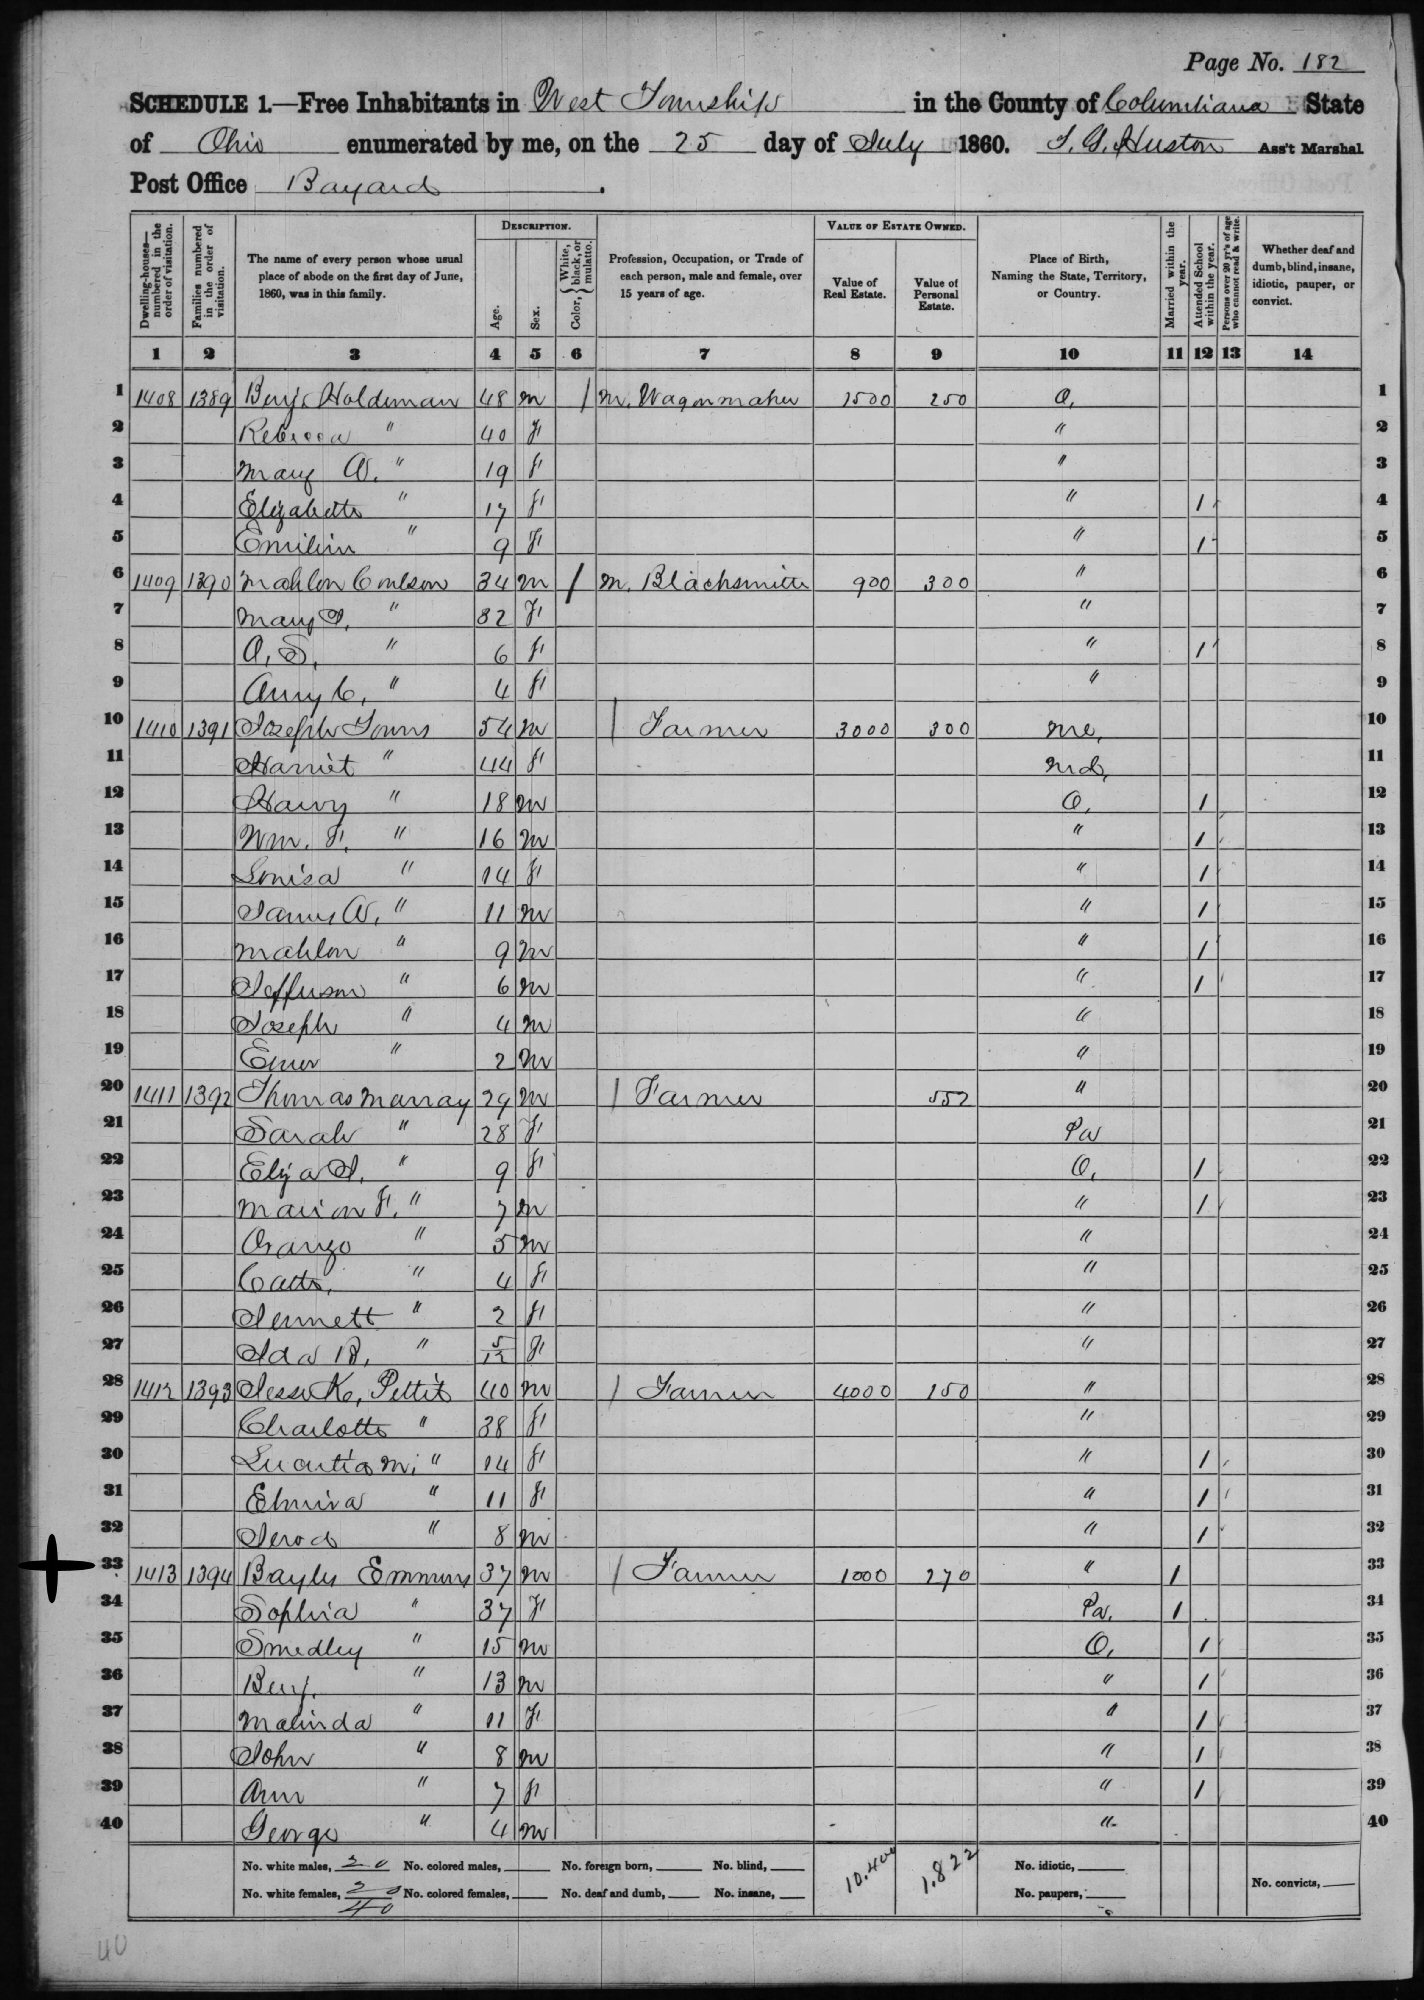 Page No. 182
SCHEDULE 1.—Free Inhabitants in West Township in the County of Columbiana State
of Ohio enumerated by me, on the 25 day of July 1860. Huston Ass't Marshal
Post Office Bayard.
Dwelling-houses—numbered in the order of visitation. Families numbered in the order of visitation. The name of every person whose usual place of abode on the first day of June, 1860, was in this family. DESCRIPTION. Age. Sex. Color, {White, black, or mulatto.} Profession, Occupation, or Trade of each person, male and female, over 15 years of age. VALUE OF ESTATE OWNED. Value of Real Estate. Value of Personal Estate. Place of Birth, Naming the State, Territory, or Country. Married within the year. Attended School within the year. Persons over 20 yr's of age who cannot read & write. Whether deaf and dumb, blind, insane, idiotic, pauper, or convict.
1 2 3 4 5 6 7 8 9 10 11 12 13 14
1 1408 1389 Benj. Holdeman 48 m / M. Wagonmaker 1500 250 O, 1
2 Rebecca " 40 F " 2
3 Mary A. " 19 f " 3
4 Elizabeth " 17 f " 1 4
5 Emiline " 9 F " 1 5
6 1409 1390 Mahlon Coulson 34 m / M. Blacksmith 900 300 " 6
7 Mary " 32 F " 7
8 A. S. " 6 f " 1 8
9 Amy C. " 4 f " 9
10 1410 1391 Joseph Towns 54 m / Farmer 3000 300 Me, 10
11 Harriet " 44 f Md, 11
12 Harvy " 18 m O, 1 12
13 Wm. F. " 16 m " 1 13
14 Louisa " 14 f " 1 14
15 James A. " 11 m " 1 15
16 Mahlon " 9 m " 1 16
17 Jefferson " 6 m " 1 17
18 Joseph " 4 m " 18
19 " 2 m " 19
20 1411 1392 Thomas Marray 29 m / Farmer 552 " 20
21 Sarah " 28 F Pa 21
22 Eliza J. " 9 f O, 1 22
23 Marion F. " 7 m " 1 23
24 Orango " 5 m " 24
25 Cath, " 4 f " 25
26 Jennett " 2 f " 26
27 Ida B, " 5/12 F " 27
28 1412 1393 Jesse K, Pettit 40 m / Farmer 4000 150 " 28
29 Charlotte " 38 f " 29
30 Lucretia M, " 14 f " 1 30
31 Elmira " 11 f " 1 31
32 Jerod " 8 m " 1 32
33 1413 1394 Bayles Emmons 37 m / Farmer 1000 270 " 1 33
34 Sophia " 37 F Pa, 1 34
35 Smedley " 15 m O, 1 35
36 Benj. " 13 m " 1 36
37 Malinda " 11 F " 1 37
38 John " 8 m " 1 38
39 Ann " 7 f " 1 39
40 George " 4 m " 40
No. white males, 20 No. colored males, No. foreign born, No. blind, 10.400 1.822 No. idiotic,
No. white females, 20 No. colored females, No. deaf and dumb, No. insane, No. paupers, No. convicts,
40
40